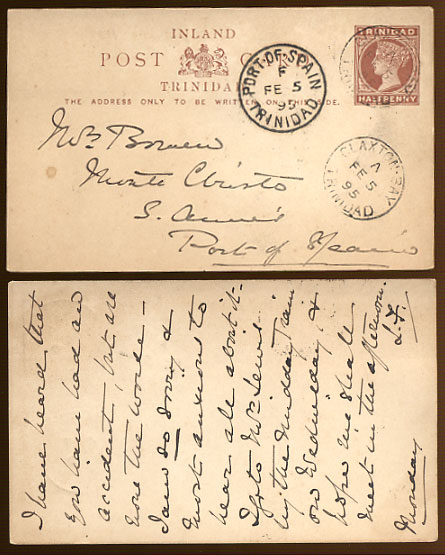 INLAND
POST CARD
TRINIDAD
THE ADDRESS ONLY TO BE WRITTEN ON THIS SIDE.
TRINIDAD
HALFPENNY
PORT-OF-SPAIN
F
FE 5
95
TRINIDAD
CLAXTON-BAY
A
FE 5
95
TRINIDAD
Mrs
Monte Christo
S. Anne's
Port of Spain
I have heard that
you have had an
accident, but are
none the worse —
I am so sorry &
most anxious to
hear all about it.
I go to Mrs Lewis
by the Midday Train
on Wednesday &
hope we shall
meet in the afternoon.
L.F.
Monday